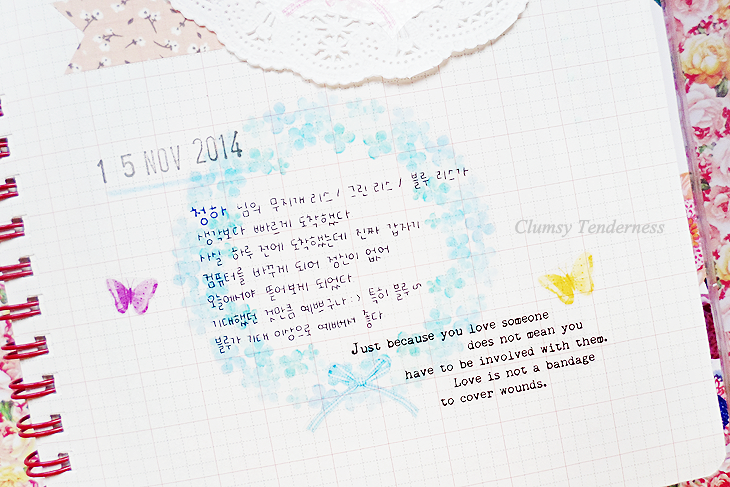 15 NOV 2014
청하 님의 무지개 리스 / 그린 리스 / 블루 리스가
생각보다 빠르게 도착했다
사실 하루 전에 도착했는데 진짜 갑자기
컴퓨터를 바꾸게 되어 정신이 없어
오늘에서야 뜯어보게 되었다
기대했던 것만큼 예쁘구나 :) 특히 블루
블루가 기대 이상으로 예뻐서 좋다
Clumsy Tenderness
Just because you love someone
does not mean you
have to be involved with them.
Love is not a bandage
to cover wounds.